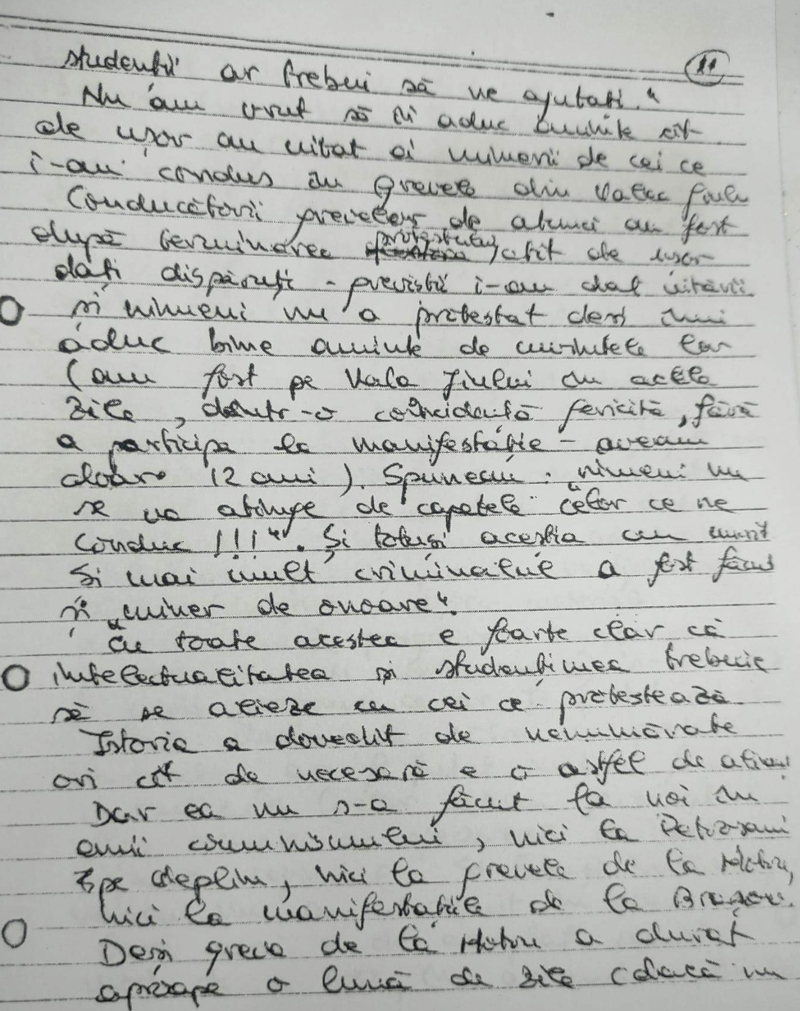 11
studenții ar trebui să ne ajutați."
Nu am vrut să îi aduc aminte cît
de ușor au uitat și minerii de cei ce
i-au condus în grevele din Valea Jiului
Conducătorii grevelor de atunci au fost
după terminarea protestului, atît de ușor
dați dispăruți - greviștii i-au dat uitării
și nimeni nu a protestat deși îmi
aduc bine aminte de cuvintele lor
(am fost pe Valea Jiului în acele
zile, dintr-o coincidență fericită, fără
a participa la manifestație - aveam
doar 12 ani). Spuneau: "nimeni nu
se va atinge de capetele celor ce ne
conduc !!!". Și totuși aceștia au murit
Și mai mult criminalul a fost făcut
și "miner de onoare".
Cu toate acestea e foarte clar că
intelectualitatea și studențimea trebuie
să se alieze cu cei ce protestează.
Istoria a dovedit de nenumărate
ori cît de necesară e o astfel de
Dar ea nu s-a făcut la noi în
anii comunismului, nici la Petroșani
pe deplin, nici la grevele de la Motru,
nici la manifestațiile de la Brașov.
Deși greva de la Motru a durat
aproape o lună de zile (dacă nu